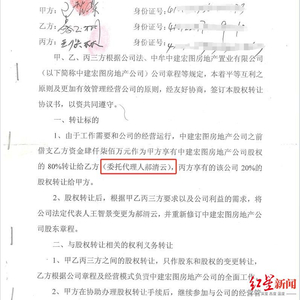 甲方： 身份证号：
乙方： 身份证号：
丙方： 身份证号：
甲、乙、丙三方根据公司法、中牟中建宏图房地产置业有限公司
（以下简称中建宏图房地产公司）公司章程等规定，本着平等互利之
原则及更加有效管理经营公司的原则，经友好协商，签订本股权转让
协议书，以资共同遵守。
一、转让标的
1、由于工作需要和公司的经营运行，中建宏图房地产公司之前
借支乙方资金肆仟柒佰万元作为甲方享有中建宏图房地产公司股权
的80%转让给乙方（委托代理人郝清云），丙方享有的该公司20%的
股权转让给甲方。
2、股权转让后，根据甲乙丙三方要求以及公司利益的需求，将
公司法定代表人王智景变更为郝清云，并重新修订中建宏图房地产公
司股东章程。
二、与股权转让相关的权利义务转让
1、甲乙丙三方之间的股权转让，只作股东和股权的变更转让，
乙方根据公司章程及经营模式负责中建宏图房地产公司的全面工作。
2、甲方在协助办理股权转让手续后，继续参与公司的经营
红星新闻